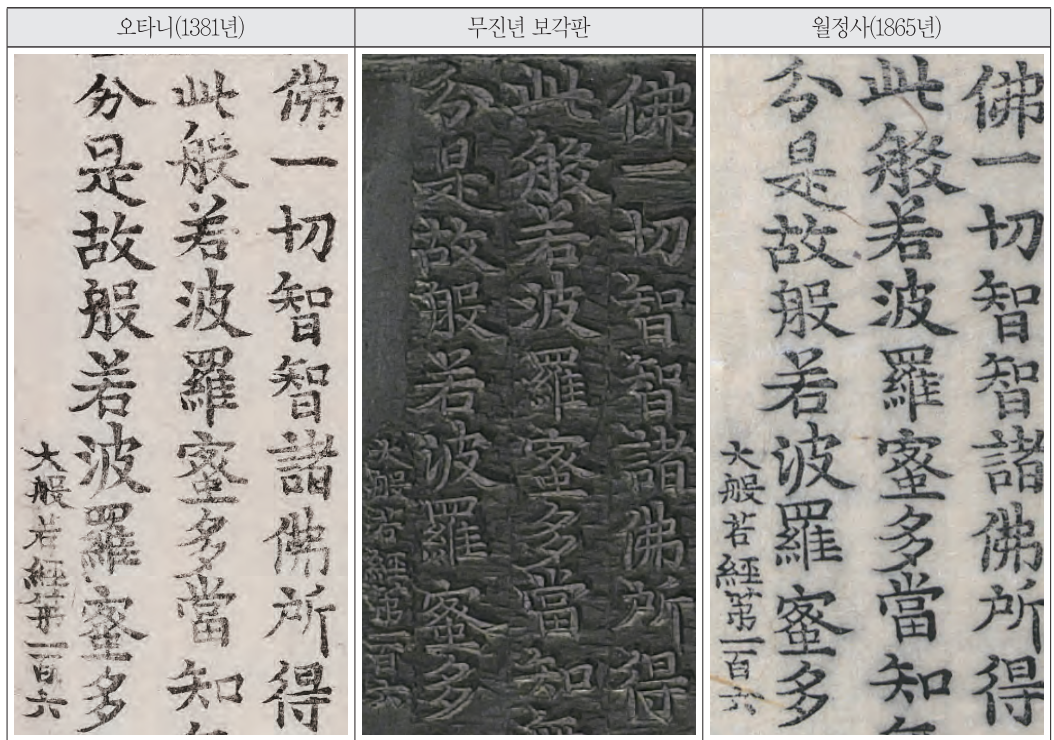 오타니(1381년)
무진년 보각판
월정사(1865년)
佛一切智智諸佛所得
此般若波羅蜜多當知
分是故般若波羅蜜多
大般若經第一百六
佛一切智智諸佛所得
此般若波羅蜜多當知
分是故般若波羅蜜多
大般若經第一百六
佛一切智智諸佛所得
此般若波羅蜜多當知
分是故般若波羅蜜多
大般若經苐一百六